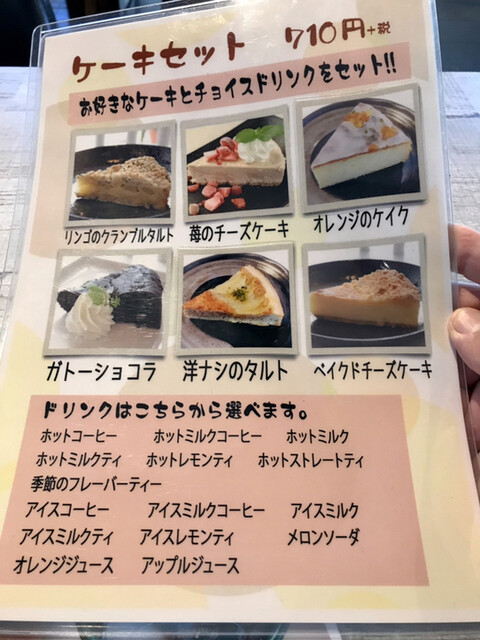 ケーキセット 710円+税
お好きなケーキとチョイスドリンクをセット!!
リンゴのクランブルタルト 苺のチーズケーキ オレンジのケイク
ガトーショコラ 洋ナシのタルト ベイクドチーズケーキ
ドリンクはこちらから選べます。
ホットコーヒー ホットミルクコーヒー ホットミルク
ホットミルクティ ホットレモンティ ホットストレートティ
季節のフレーバーティー
アイスコーヒー アイスミルクコーヒー アイスミルク
アイスミルクティ アイスレモンティ メロンソーダ
オレンジジュース アップルジュース